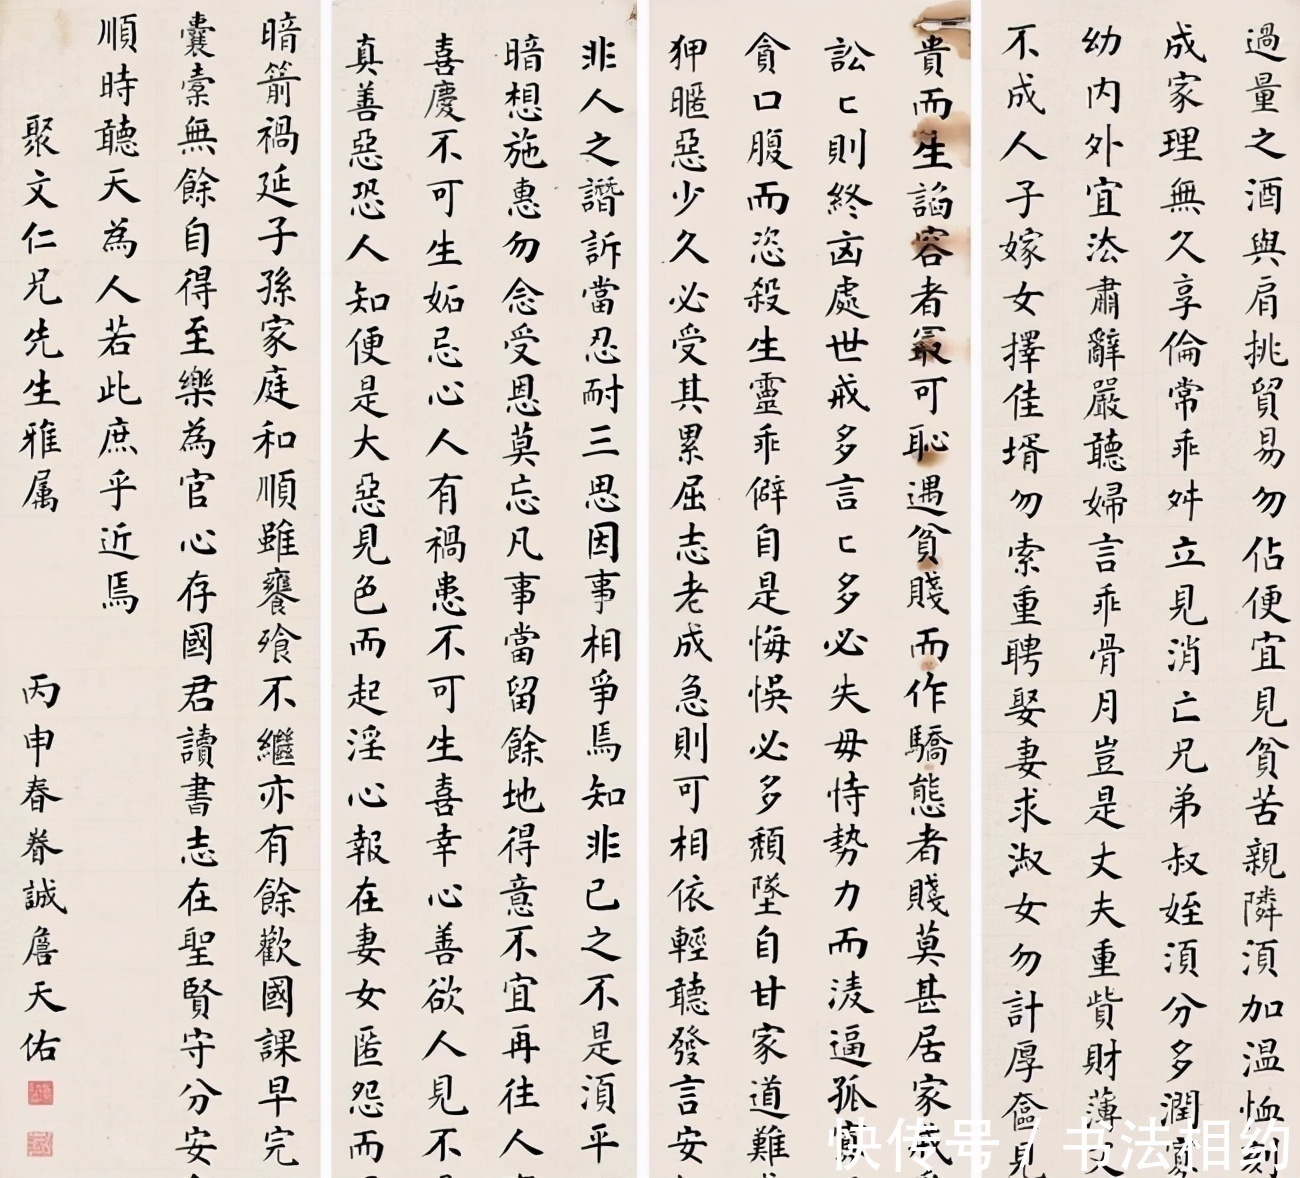 過量之酒與肩挑貿易勿佔便宜見貧苦親隣須加温恤刻
成家理無久享倫常乖舛立見消亡兄弟叔姪須分多潤寡
幼内外宜法肅辭嚴聽婦言乖骨月豈是丈夫重貲財薄父
不成人子嫁女擇佳壻勿索重聘娶妻求淑女勿計厚奩見
貴而生諂容者最可恥遇貧賤而作驕態者賤莫甚居家戒
訟匕則終凶處世戒多言匕多必失毋恃勢力而淩逼孤寡
貪口腹而恣殺生靈乖僻自是悔悞必多頹墜自甘家道難
狎暱惡少久必受其累屈志老成急則可相依輕聽發言安
非人之譖訴當忍耐三思因事相爭焉知非己之不是須平
暗想施惠勿念受恩莫忘凡事當留餘地得意不宜再往人
喜慶不可生妬忌心人有禍患不可生喜幸心善欲人見不
真善惡恐人知便是大惡見色而起淫心報在妻女匿怨而
暗箭禍延子孫家庭和順雖饔飧不繼亦有餘歡國課早完
囊橐無餘自得至樂為官心存國君讀書志在聖賢守分安
順時聽天為人若此庶乎近焉
聚文仁兄先生雅属
丙申春眷誠詹天佑
快传号 / 书法相约